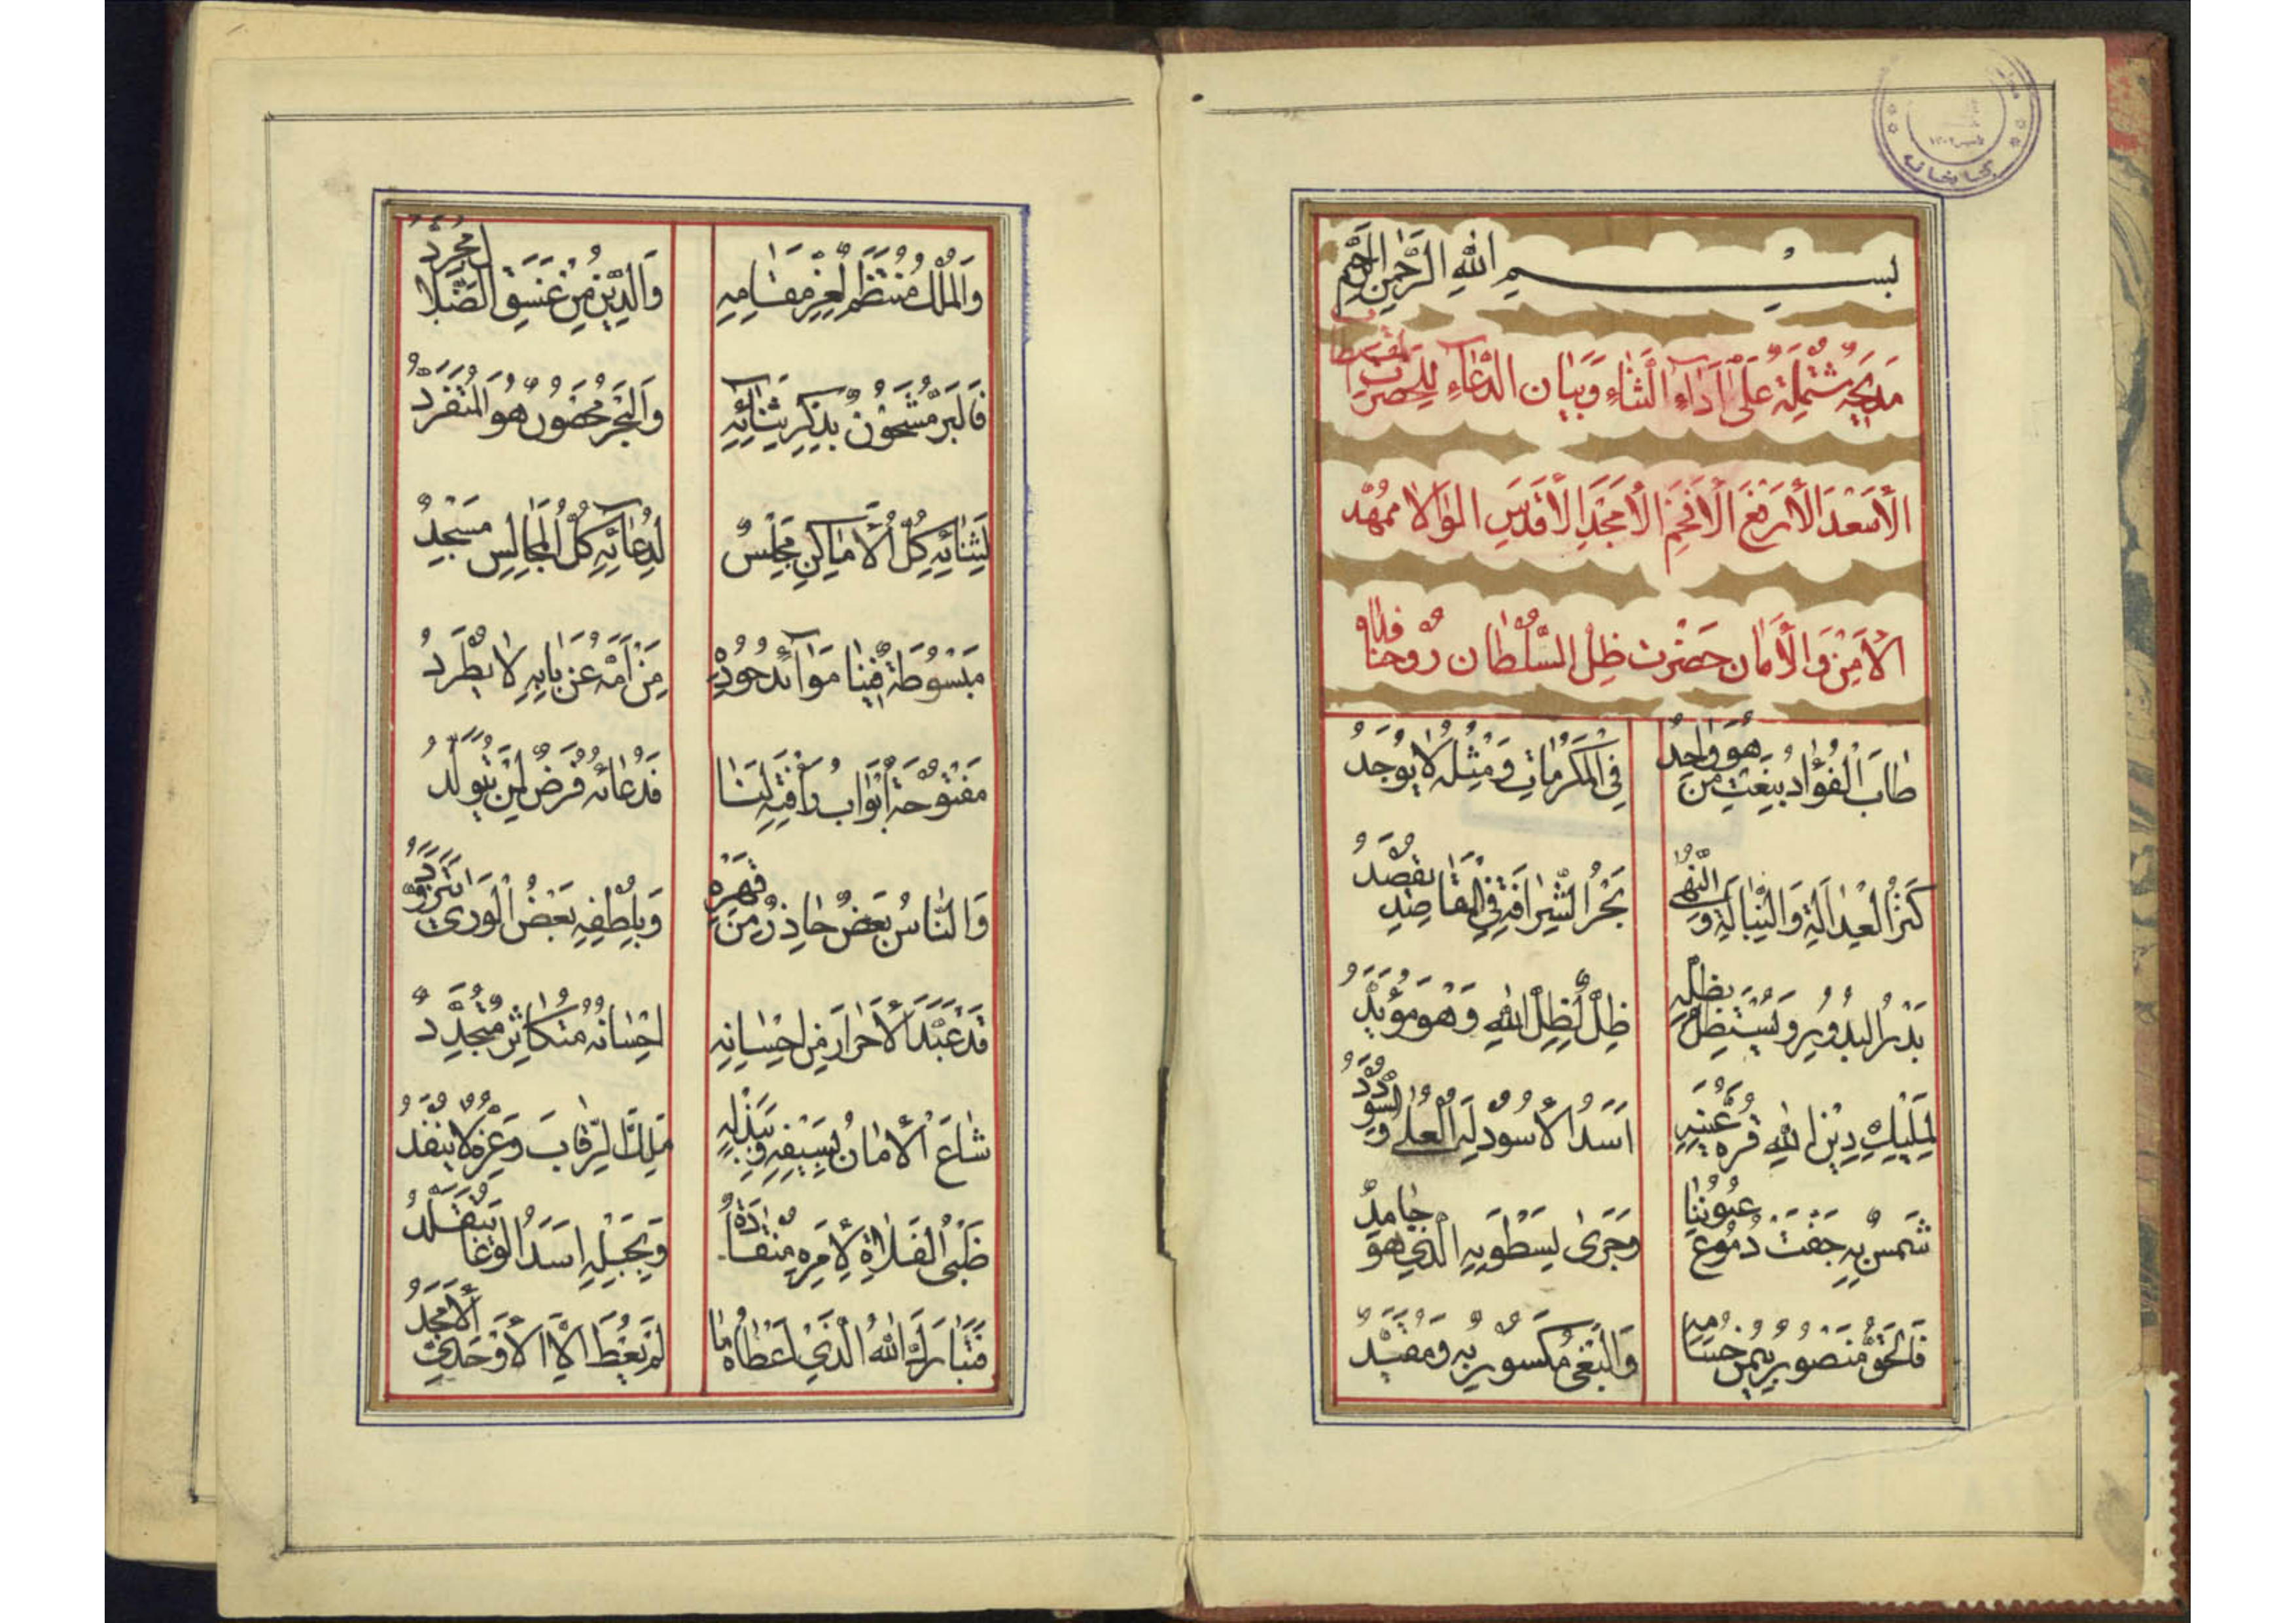 بسم الله الرحمن الرحيم
مَديحَة مُشتملة عَلَى اَداءِ الثَناءِ وَبَيان الدُعَاءِ لِلحضرت
الأسعَد الأرفَع الأفخَم الأمجَد الأقدَس الوالا ممهّد
الأمن وَالأمان حَضرت ظِل السُّلطان رُوحنا فداه
طابَ الفُؤاد بنَعت من هُوَ واحِدُ فِي المَكرماتِ وَمثلُه لا يُوجَدُ
كَنزُ العدالَة وَالنبالَة وَ النُّهى بَحرُ الشرافَة فِي المقاصِد يقصَدُ
بَدرُ البدُورِ وَيَستظلّ بظلّه ظِلّ لِظلّ اللهِ وَهو مؤيَّدُ
لمَليكِ دِينِ اللهِ قرة عينِه اَسَدُ الأسُود لَه العُلى وَ السودَدُ
شَمسٌ بِه جَفّت دمُوعُ عُيُوننا وَجَرى بِسَطوتِه الذي هُو جامِدُ
فَالحَقّ مَنصُور بيُمنِ حُسَامه وَالبَغي مكسُور بِه وَمقيَّدُ
وَالمُلك مُنتظَم لِعِزّ مَقامِه وَالدّين مِن غَسَق الضّلال مُجرَّدُ
فَالبَرّ مَشحُونٌ بِذكرِ ثَنائِه وَالبَحر هُو المتفرّدُ
لِثَنائِه كلُّ الأماكِنِ مَجلسٌ لِدُعائِه كلُّ المَجالِس مَسجدُ
مَبسُوطَة فِينا مَوائد جُودِه مَن اَمَّه عَن بابِه لا يُطرَدُ
مَفتُوحَة اَبوابُ رأفتِه لَنا فَدُعائه فَرضٌ لمن يتولَّدُ
وَالنّاسُ بَعضٌ حاذِرٌ من قَهرِه وَبِلطفِه بَعضُ الوَرى
قَد عَبّدَ الأحرارَ مِن اِحسانِه اِحسانه متكاثِر متجدّدُ
شاعَ الأمانُ بِسَيفِه وَ بَبَذلِه مَلك الرِّقابَ وَعِزّه لا ينفَدُ
ظَبيُ الفَلاةِ لِأمرِه منقادَةٌ اَسَدُ الوَغا
فَتَبارَك اللهُ الذي اَعطاهُ ما لَم يُعطَ اِلّا الأوحَديّ الأمجَدُ